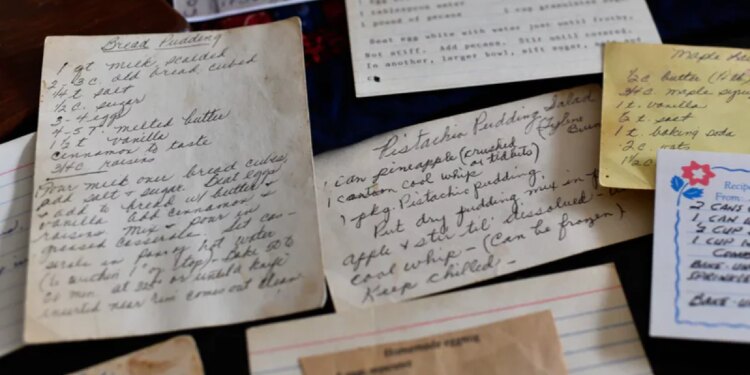 Bread Pudding
1 qt milk scalded
2-3 C. old bread cubed
1/4 t. salt
1/2 C. sugar
3-4 eggs
4-5 T. melted butter
1 t. vanilla
cinnamon to taste
3/4 C raisins
Pour milk over bread cubes,
add salt & sugar. Beat eggs
& add to bread w/ butter &
vanilla. add cinnamon &
raisins. Mix & pour in
greased casserole. Set cas-
serole in pan of hot water
(to within 1" of top) - Bake
min. at or until a knife
inserted near rim comes out clean
1 tablespoon water
1 pound of pecans
1 cup granulated
Beat egg white with water just until frothy,
not stiff. Add pecans. Stir until covered.
In another, larger bowl, sift sugar,
Pistachio Pudding Salad
1 can pineapple (crushed
or tidbits)
1 cartoon cool whip
1 pkg. Pistachio pudding.
Put dry pudding mix in
apple & stir til' dissolved -
cool whip - (Can be frozen)
Keep chilled -
Maple
1/2 C. butter
3/4 C. maple
1 t. vanilla
1/2 t. salt
1 t. baking soda
oats
Recip
From:
2 CANS
1 CAN
CUP
1 CUP
BAKE
SPRINKLE
BAKE
Homemade eggnog